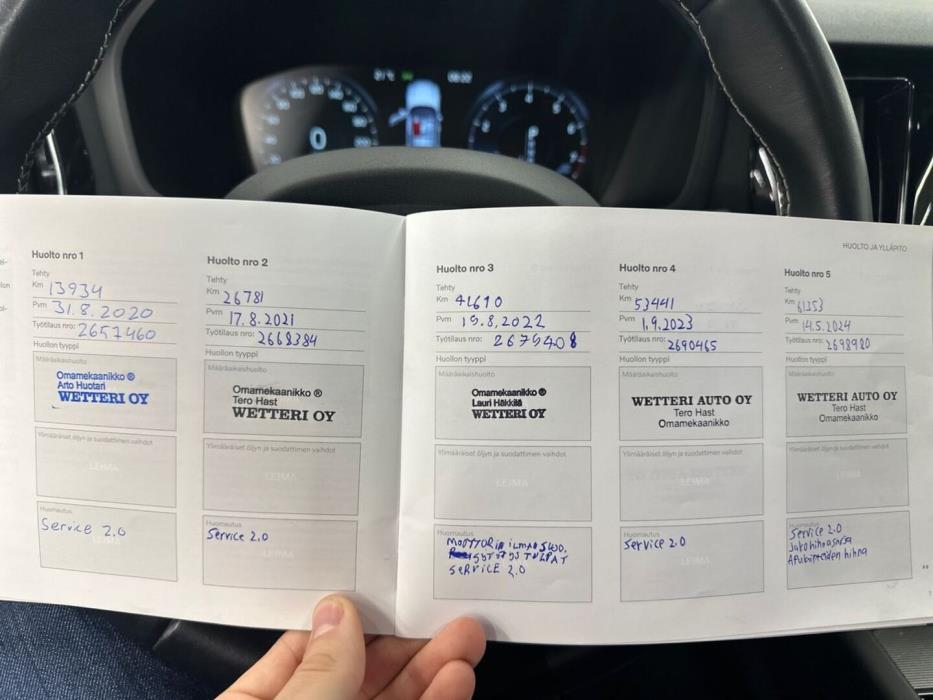 HUOLTO JA YLLÄPITO
Huolto nro 1
Tehty
Km 13934
Pvm 31.8.2020
Työtilaus nro: 2651460
Huollon tyyppi
Määräaikaishuolto
Omamekaanikko ®
Arto Huotari
WETTERI OY
Ylimääräiset öljyn ja suodattimen vaihdot
LEIMA
Huomautus
Service 2.0
Huolto nro 2
Tehty
Km 26781
Pvm 17.8.2021
Työtilaus nro: 2668384
Huollon tyyppi
Määräaikaishuolto
Omamekaanikko ®
Tero Hast
WETTERI OY
Ylimääräiset öljyn ja suodattimen vaihdot
LEIMA
Huomautus
Service 2.0
LEIMA
Huolto nro 3
Tehty
Km 41610
Pvm 15.8.2022
Työtilaus nro: 2679408
Huollon tyyppi
Määräaikaishuolto
Omamekaanikko ®
Lauri Häkkilä
WETTERI OY
Ylimääräiset öljyn ja suodattimen vaihdot
LEIMA
Huomautus
MOOTTORIN ILMANSUOD.
SYTYTYSTULPAT
SERVICE 2.0
Huolto nro 4
Tehty
Km 53441
Pvm 1.9.2023
Työtilaus nro: 2690465
Huollon tyyppi
Määräaikaishuolto
WETTERI AUTO OY
Tero Hast
Omamekaanikko
Ylimääräiset öljyn ja suodattimen vaihdot
LEIMA
Huomautus
Service 2.0
LEIMA
Huolto nro 5
Tehty
Km 61353
Pvm 14.5.2024
Työtilaus nro: 2698980
Huollon tyyppi
Määräaikaishuolto
WETTERI AUTO OY
Tero Hast
Omamekaanikko
Ylimääräiset öljyn ja suodattimen vaihdot
LEIMA
Huomautus
Service 2.0
Jakohihnasarja
Apulaitteiden hihna